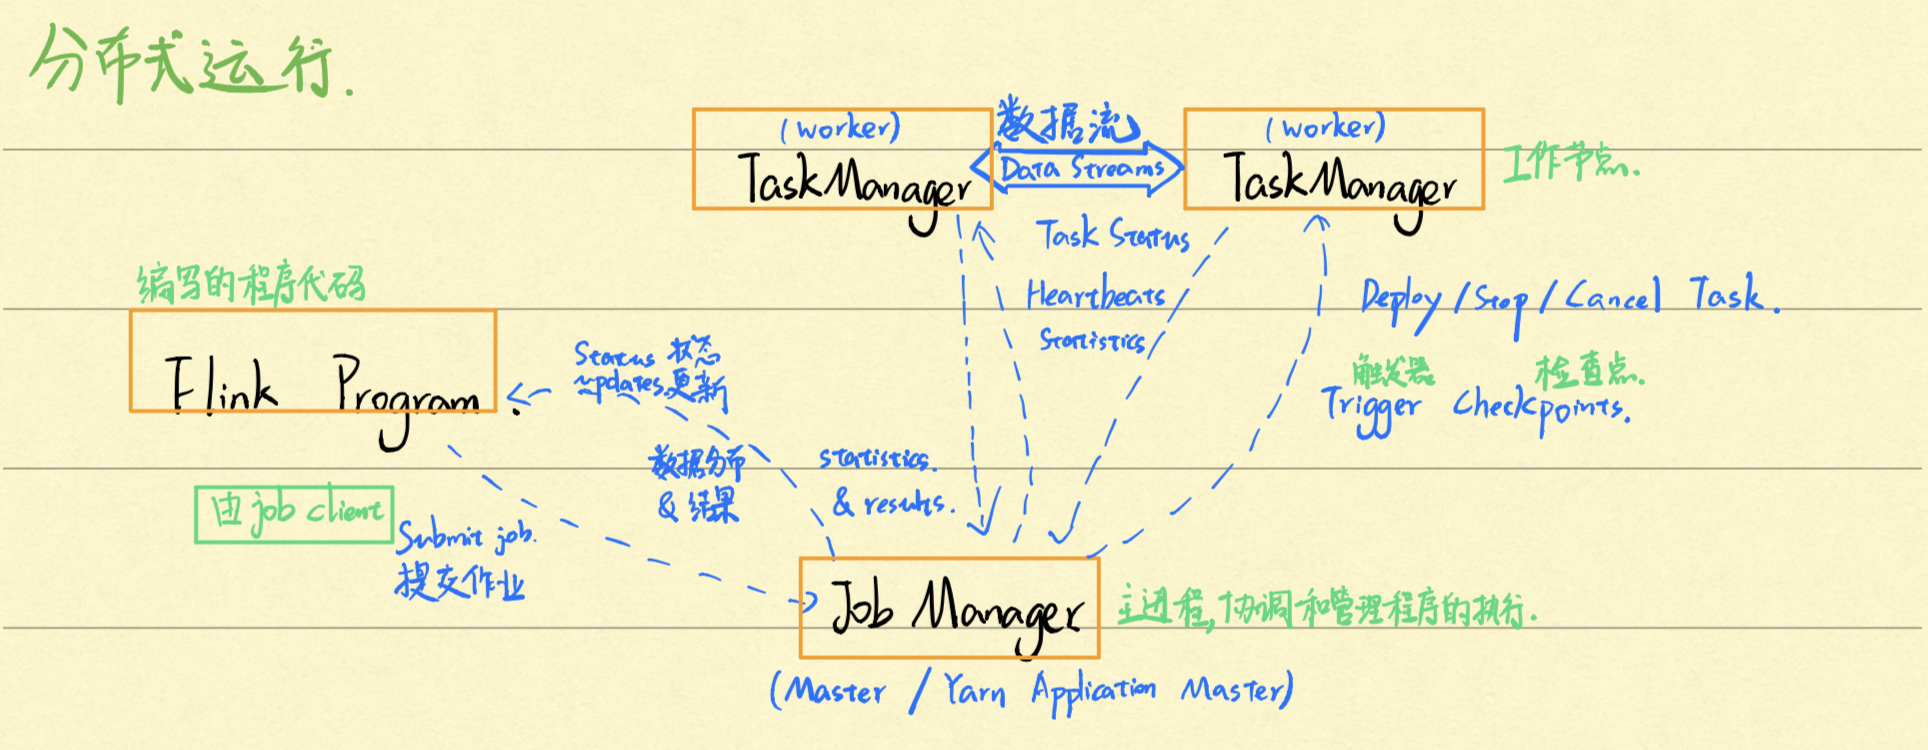 分布式运行.
(worker)
TaskManager
数据流
Data Streams
(worker)
TaskManager
工作节点.
Task Status
Heartbeats
Statistics
Deploy/Stop/Cancel Task.
触发器 检查点.
Trigger Checkpoints.
编写的程序代码
Flink Program.
Status 状态
updates 更新
数据分布
& 结果
statistics.
& results.
由 job client
Submit job.
提交作业
Job Manager
主进程,协调和管理程序的执行.
(Master / Yarn Application Master)